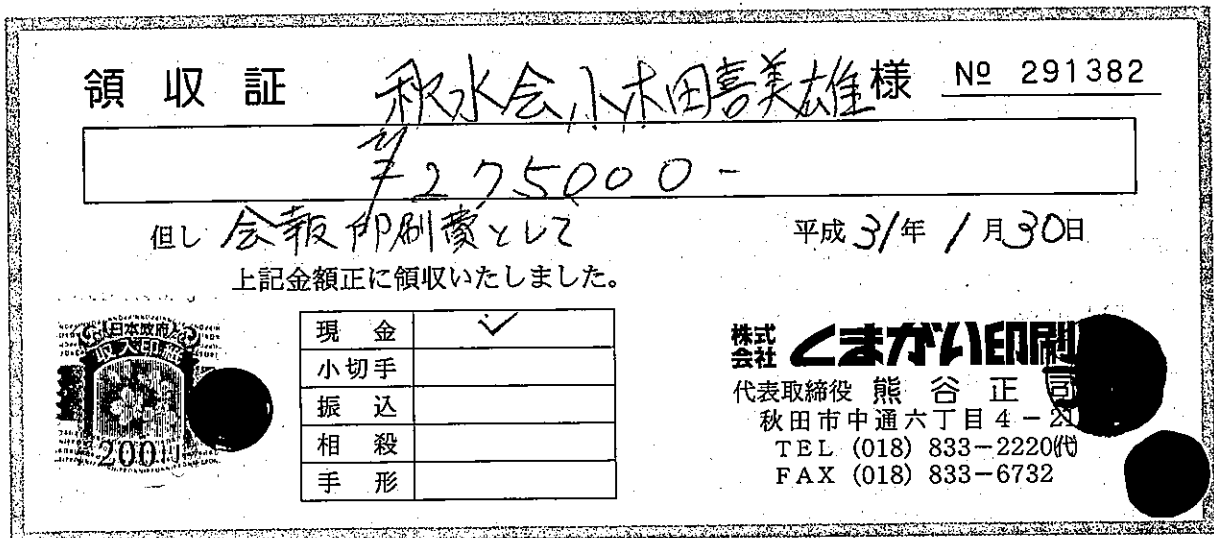 領収証 秋水会小木田喜美雄様 № 291382
¥275000-
但し 会報印刷費として 平成31年1月30日
上記金額正に領収いたしました。
日本政府
収入印紙
200円
現金 ✓
小切手
振込
相殺
手形
株式会社 くまがい印刷
代表取締役 熊谷正司
秋田市中通六丁目4-21
TEL (018) 833-2220㈹
FAX (018) 833-6732